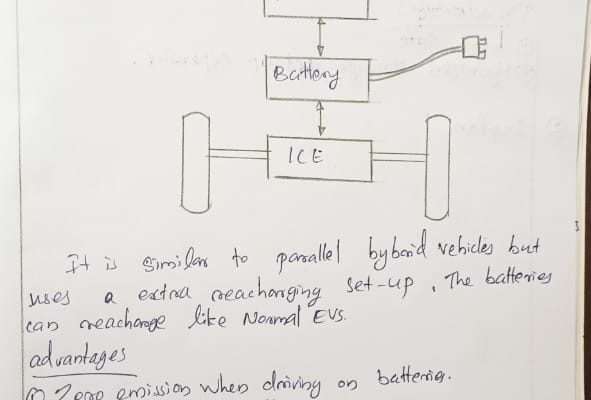 Battery
ICE
It is similar to parallel hybrid vehicles but
uses a extra reacharging set-up. The batteries
can reacharge like Normal EVs.
advantages
① Zero emission when driving on batteries.